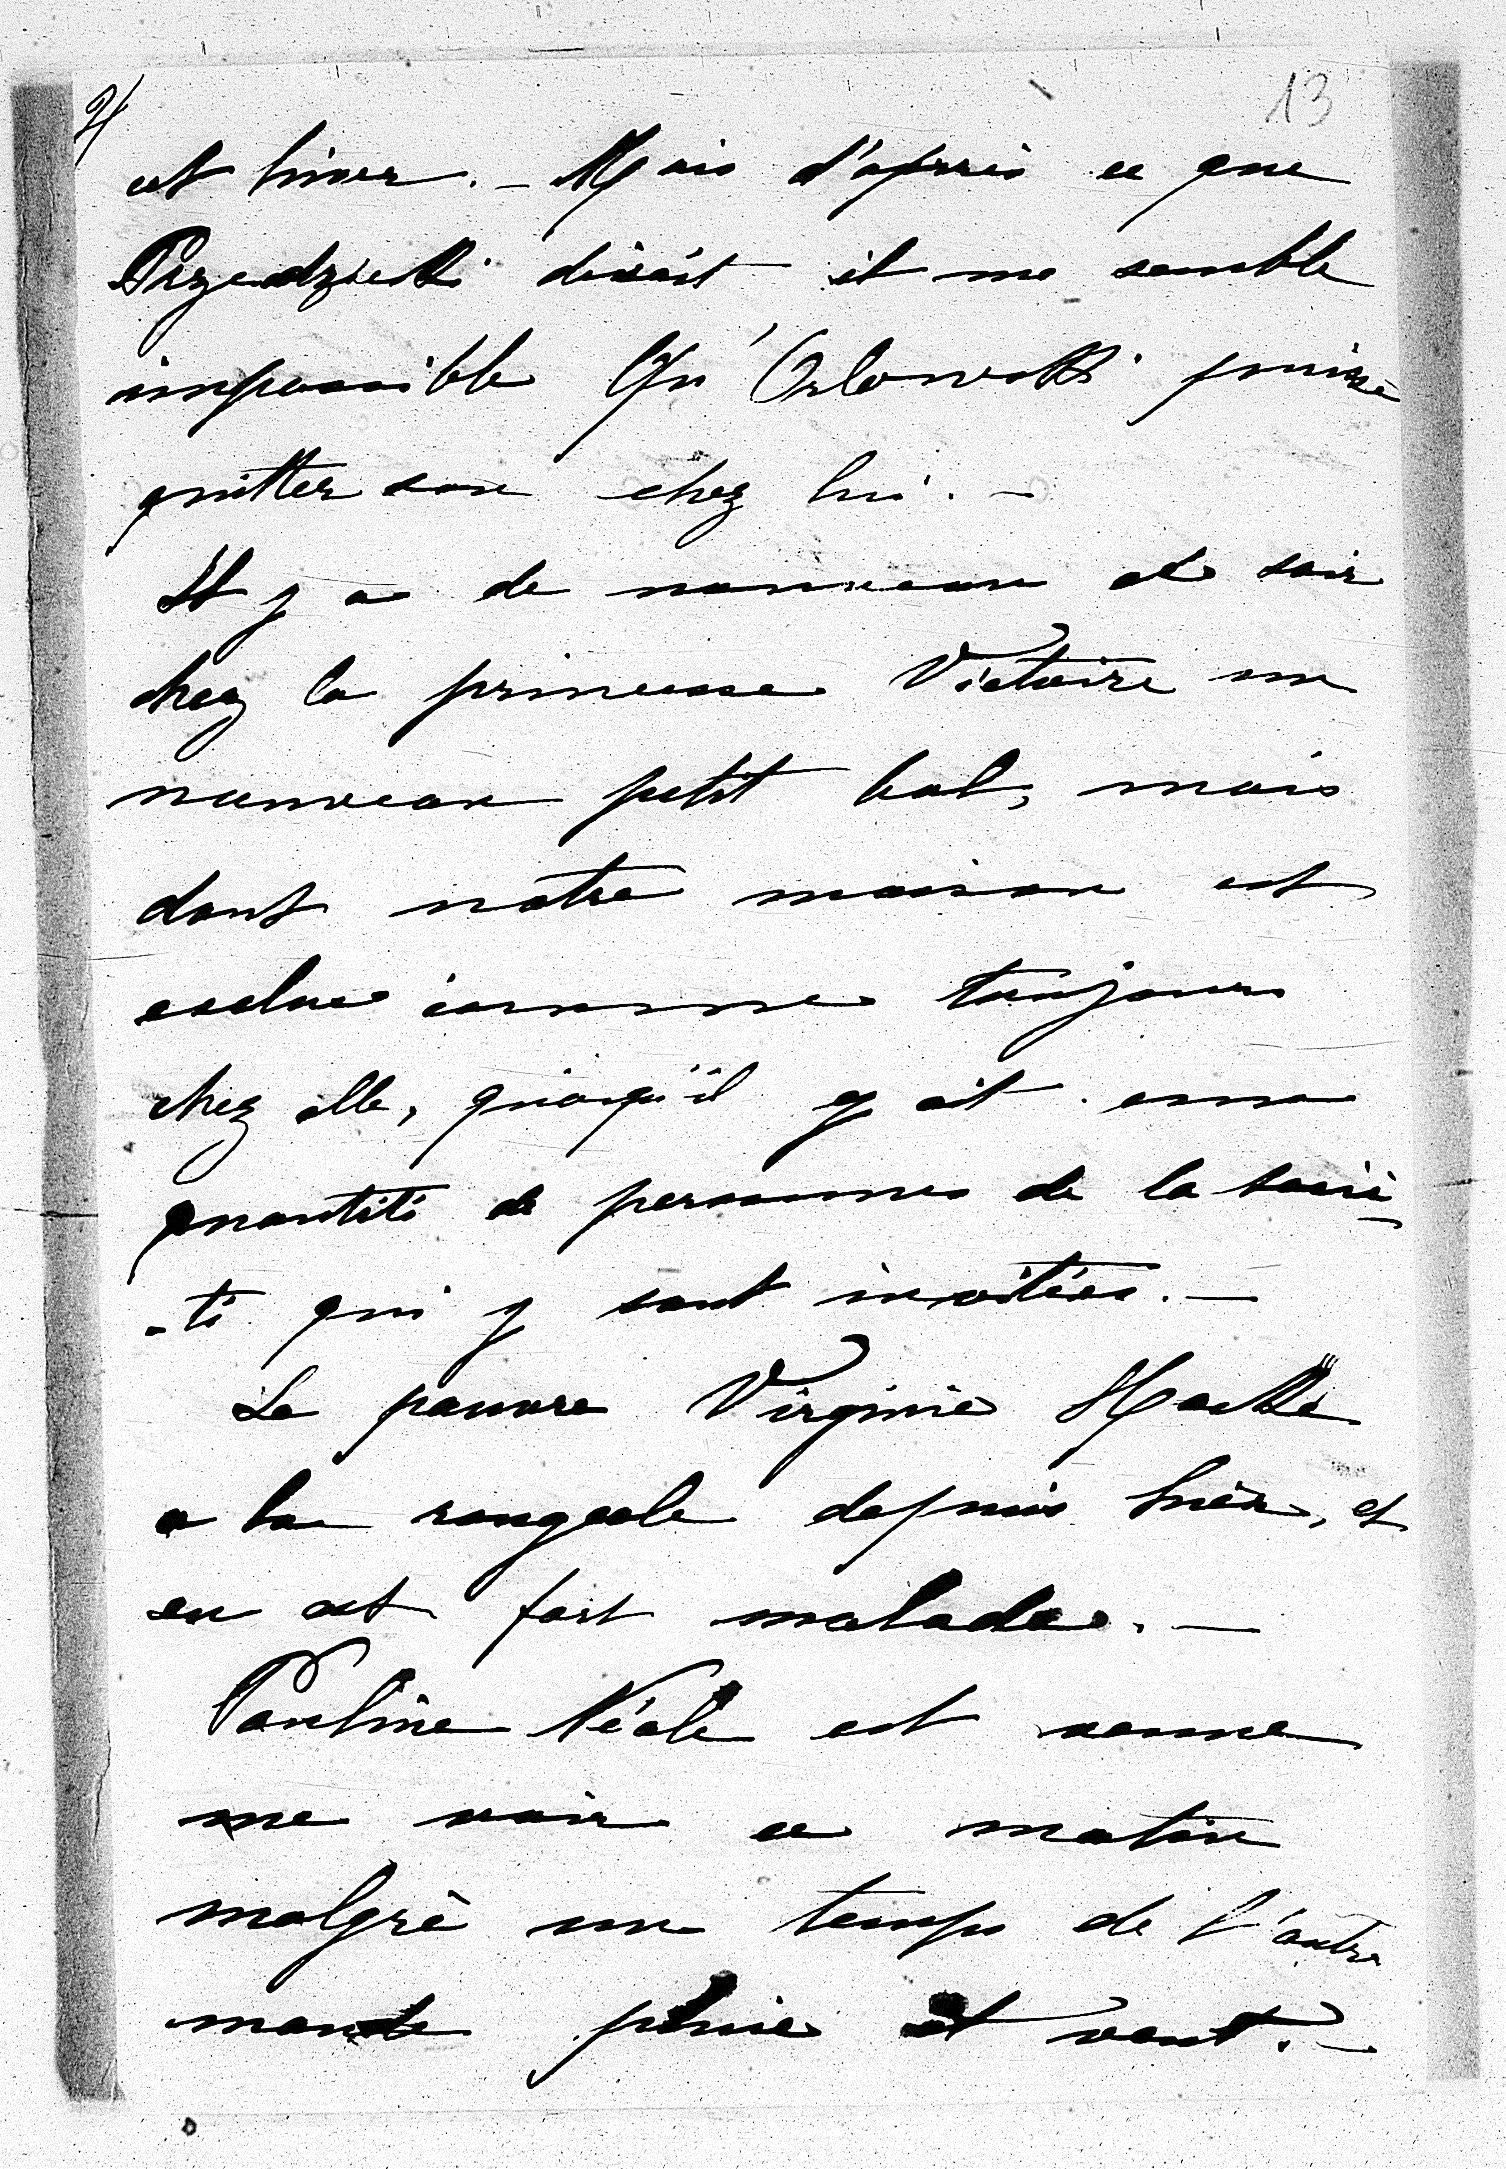 2/
13
cet hiver. – Mais d'après ce que
Przezdziecki disait il me semble
impossible Qu'Orlowski puisse
quitter son chez lui. –
Il y a de nouveau ce soir
chez la princesse Victoire un
nouveau petit bal, mais
dont notre maison est
exclue comme toujours
chez elle, quioiqu'il y ait une
quantité de personnes de la socié
-té qui y sont invitées. –
La pauvre Virginie
a la rougeole depuis hier, et
en est fort malade. –
Pauline Néale est venue
me voir ce matin
malgrè un temps de l'autre
monde pluie et vent. –